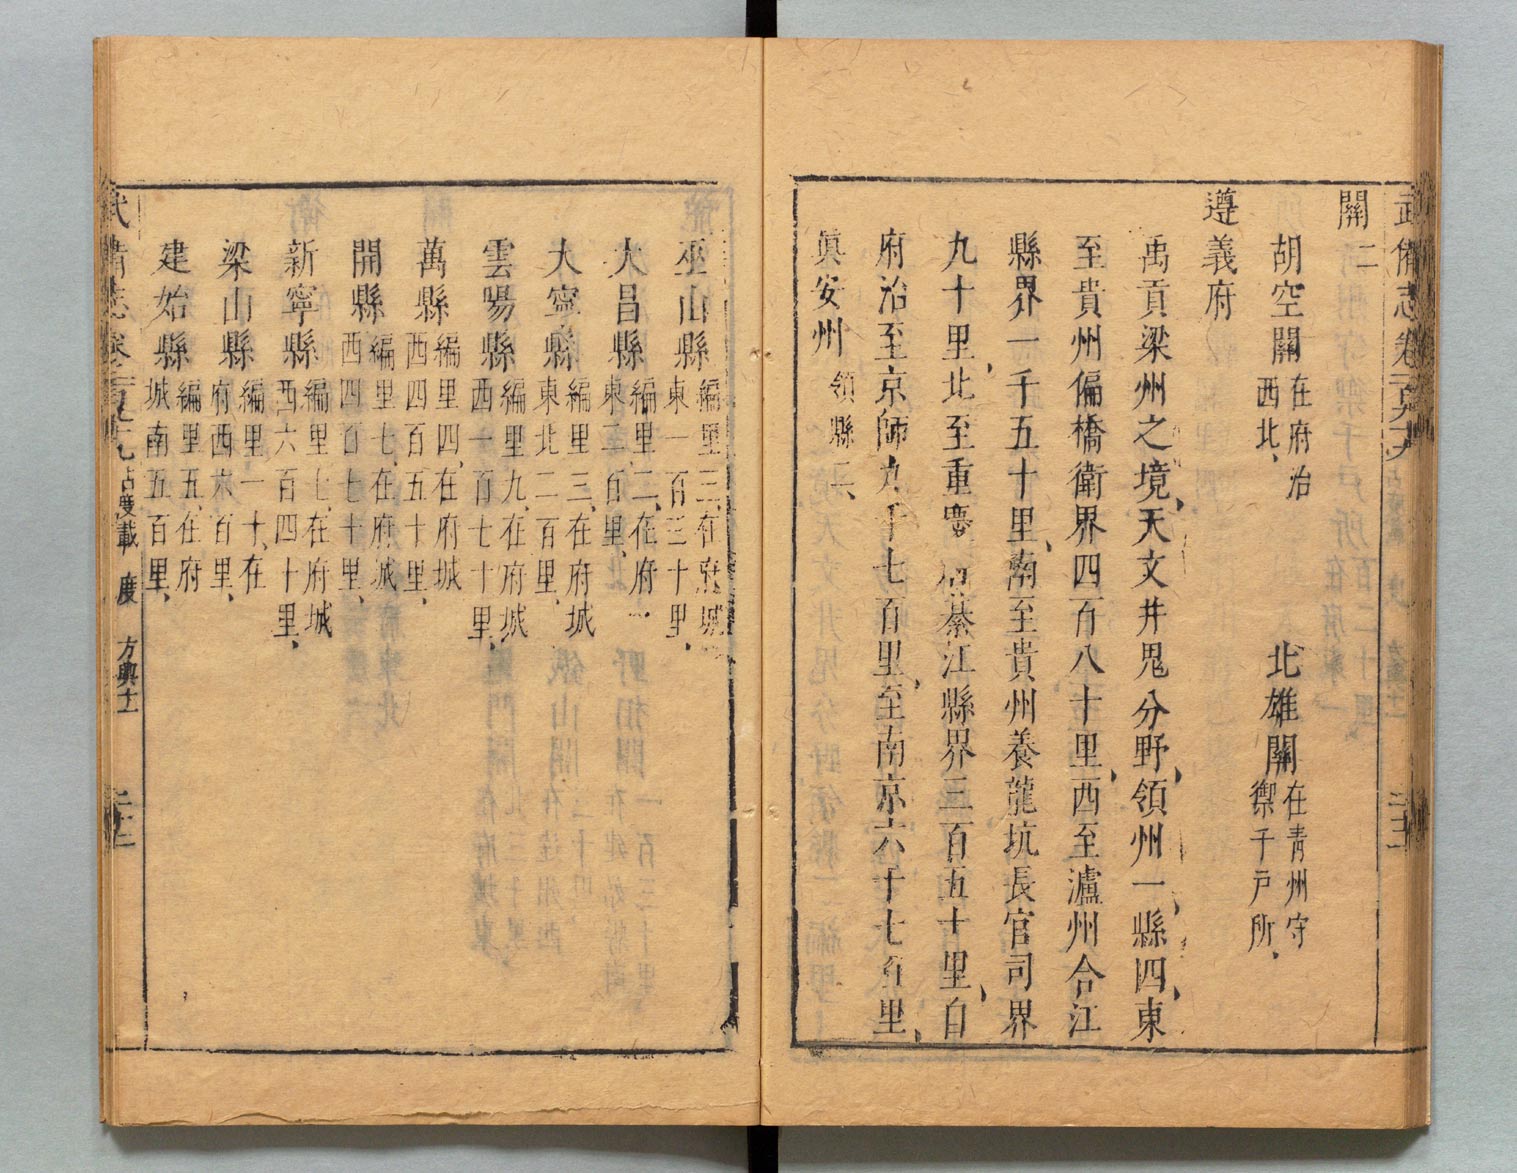 武備志卷一百九十
關二
胡空關在府治西北、 北雄關在青州守禦千戶所、
遵義府
禹貢梁州之境、天文井鬼分野、領州一縣四、東
至貴州偏橋衛界四百八十里、西至瀘州合江
縣界一千五十里、南至貴州養龍坑長官司界
九十里、北至重慶府綦江縣界三百五十里、自
府治至京師九千七百里、至南京六千七百里、
眞安州領縣二、
巫山縣編里三、在府城東一百三十里、
大昌縣編里二、在府東二百里、
大寧縣編里三、在府城東北二百里、
雲陽縣編里九、在府城西一百七十里、
萬縣編里四、在府城西四百五十里、
開縣編里七、在府城西四百七十里、
新寧縣編里七、在府城西六百四十里、
梁山縣編里一十、在府西六百里、
建始縣編里五、在府城南五百里、
武備志卷 占度載 度 方輿十一 二十二